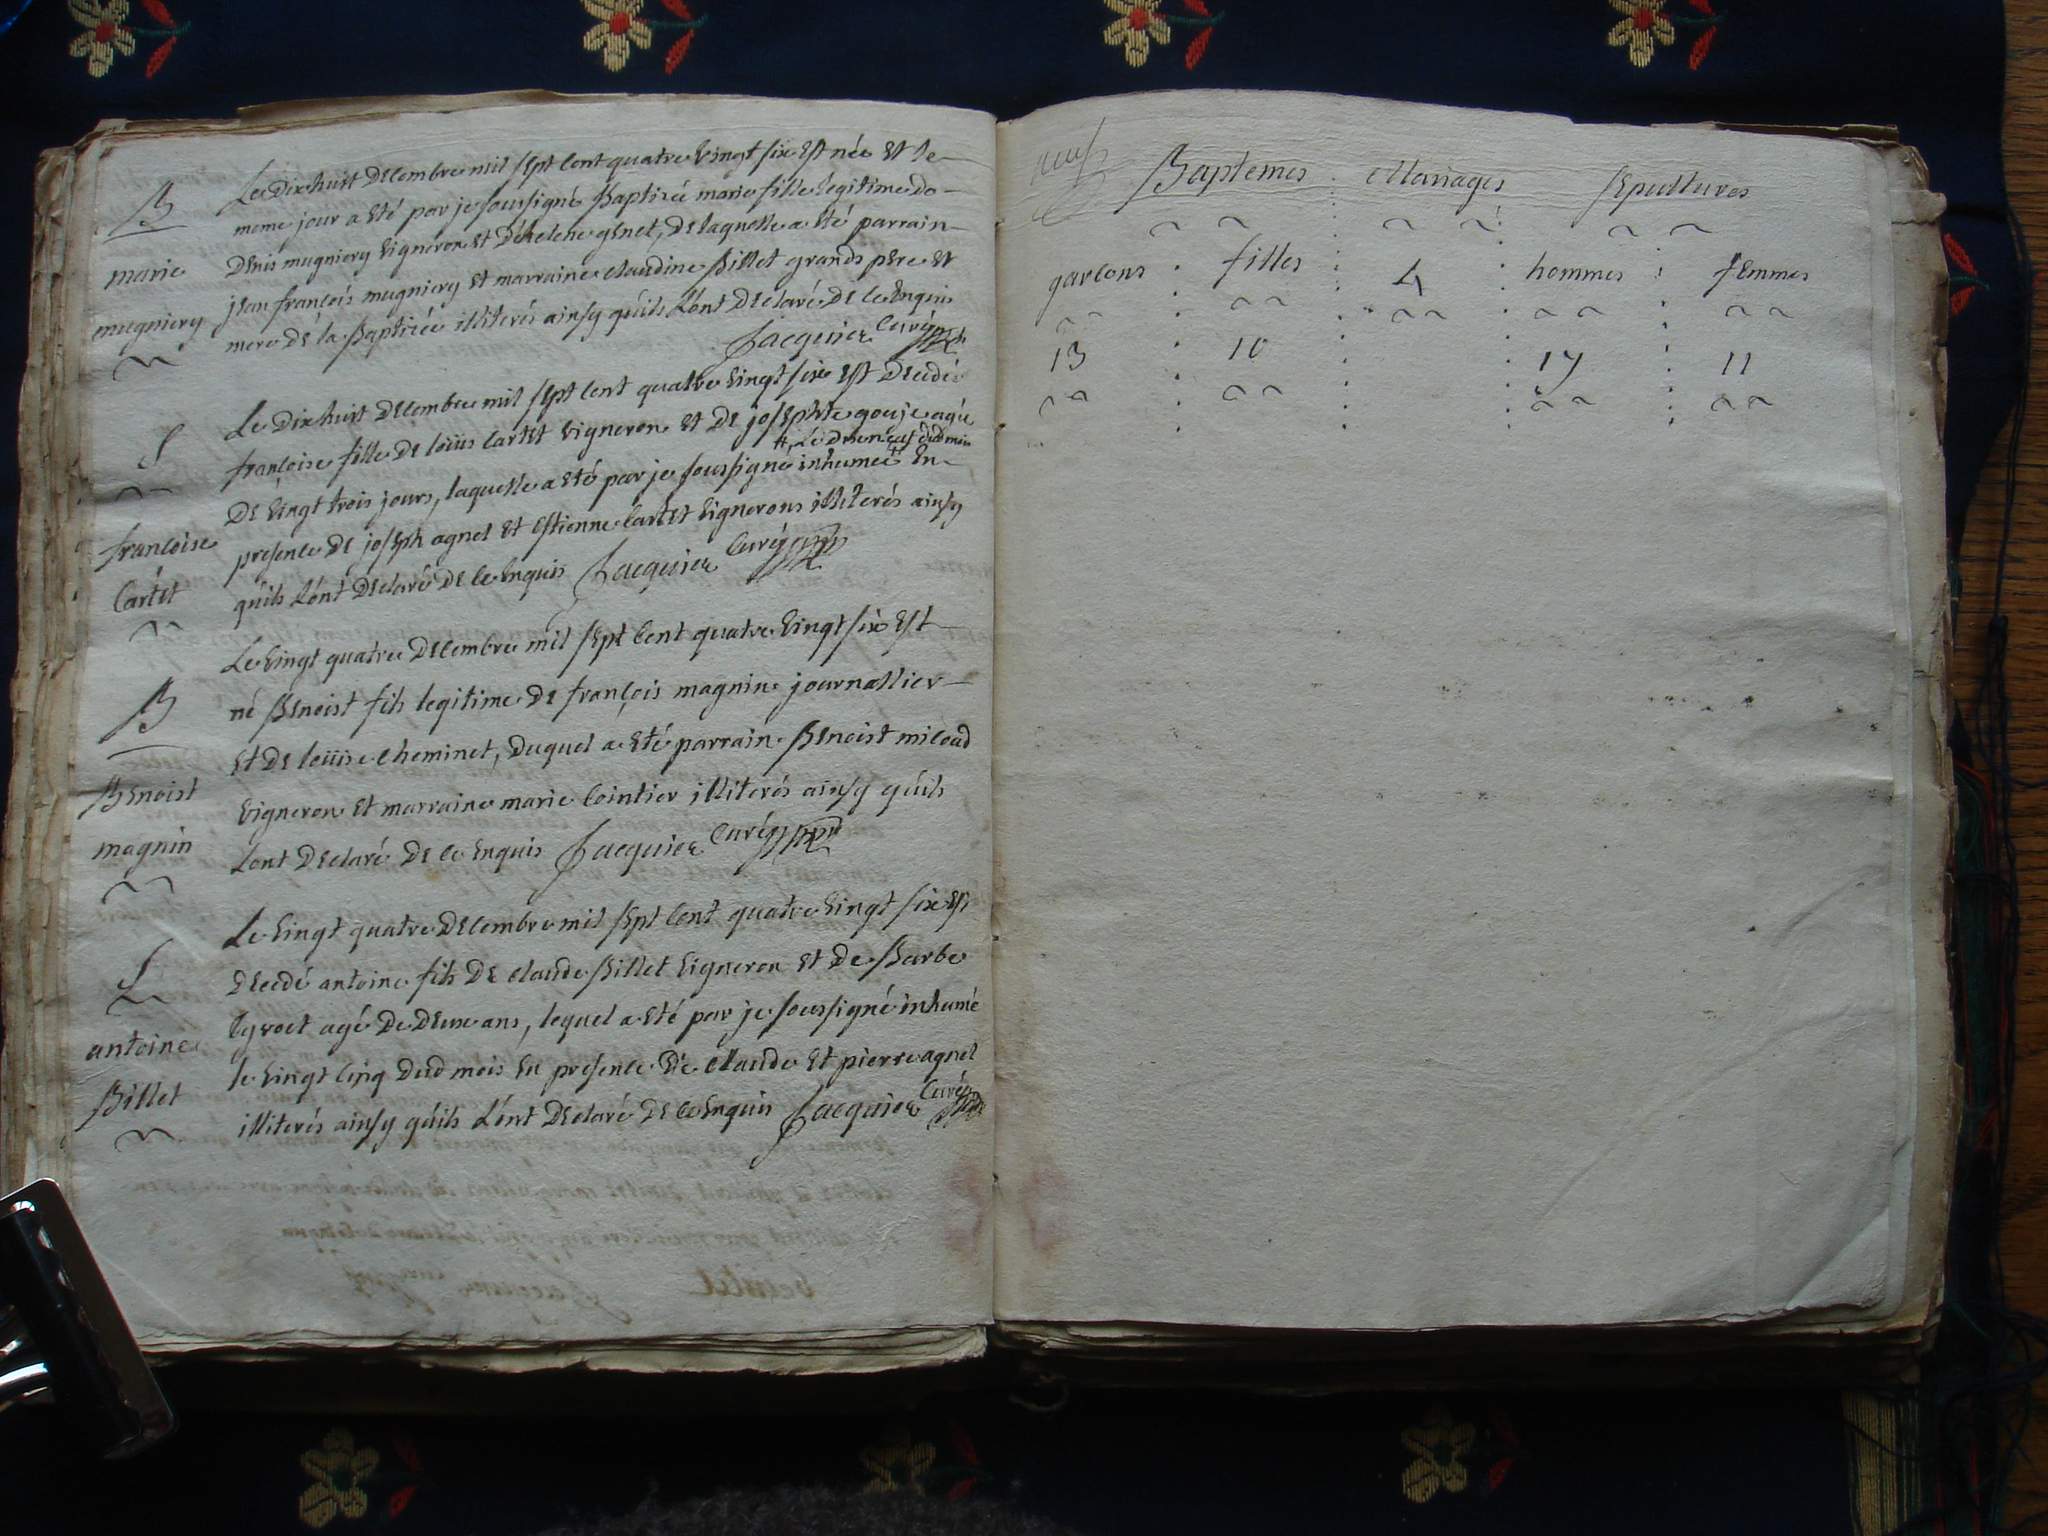 B
marie
mugniery
Le Dixhuit Decembre mil sept cent quatre vingt six est née et le
meme jour a eté par je soussigné Baptizée marie fille legitime de
Denis mugniery vigneron et d'hélene genet, de laquelle a eté parrain
jean françois mugniery et marraine claudine Billet grands pere et
mere de la Baptizée illiterés ainsy qu'ils L'ont declaré de ce enquis
Jacquier Curé
S
francoise
Cartet
Le Dixhuit Decembre mil sept cent quatre vingt six est Decedée
françoise fille de loüis Cartet vigneron et de josephte gouje agée
de vingt trois jours, laquelle a eté par je soussigné inhumée en
presence de joseph agnel et estienne Cartet vignerons illiterés ainsy
qu'ils L'ont declaré de ce enquis Jacquier Curé
B
Benoist
magnin
Le vingt quatre Decembre mil sept cent quatre vingt six est
né Benoist fils legitime de françois magnin journallier
et de loüise cheminet, duquel a eté parrain Benoist miloud
vigneron et marraine marie Cointier illiterés ainsy qu'ils
Lont declaré de ce enquis Jacquier Curé
S
antoine
Billet
Le vingt quatre Decembre mil sept cent quatre vingt six est
decedé antoine fils de claude Billet vigneron et de Barbe
Cyvoct agé de Deux ans, lequel a eté par je soussigné inhumé
le vingt cinq dud mois en presence de claude et pierre agnel
illiterés ainsy qu'ils L'ont declaré de ce enquis Jacquier Curé
Baptemes : Mariages : Sepultures
garcons : filles : 4 : hommes : femmes
13 : 10 : : 17 : 11